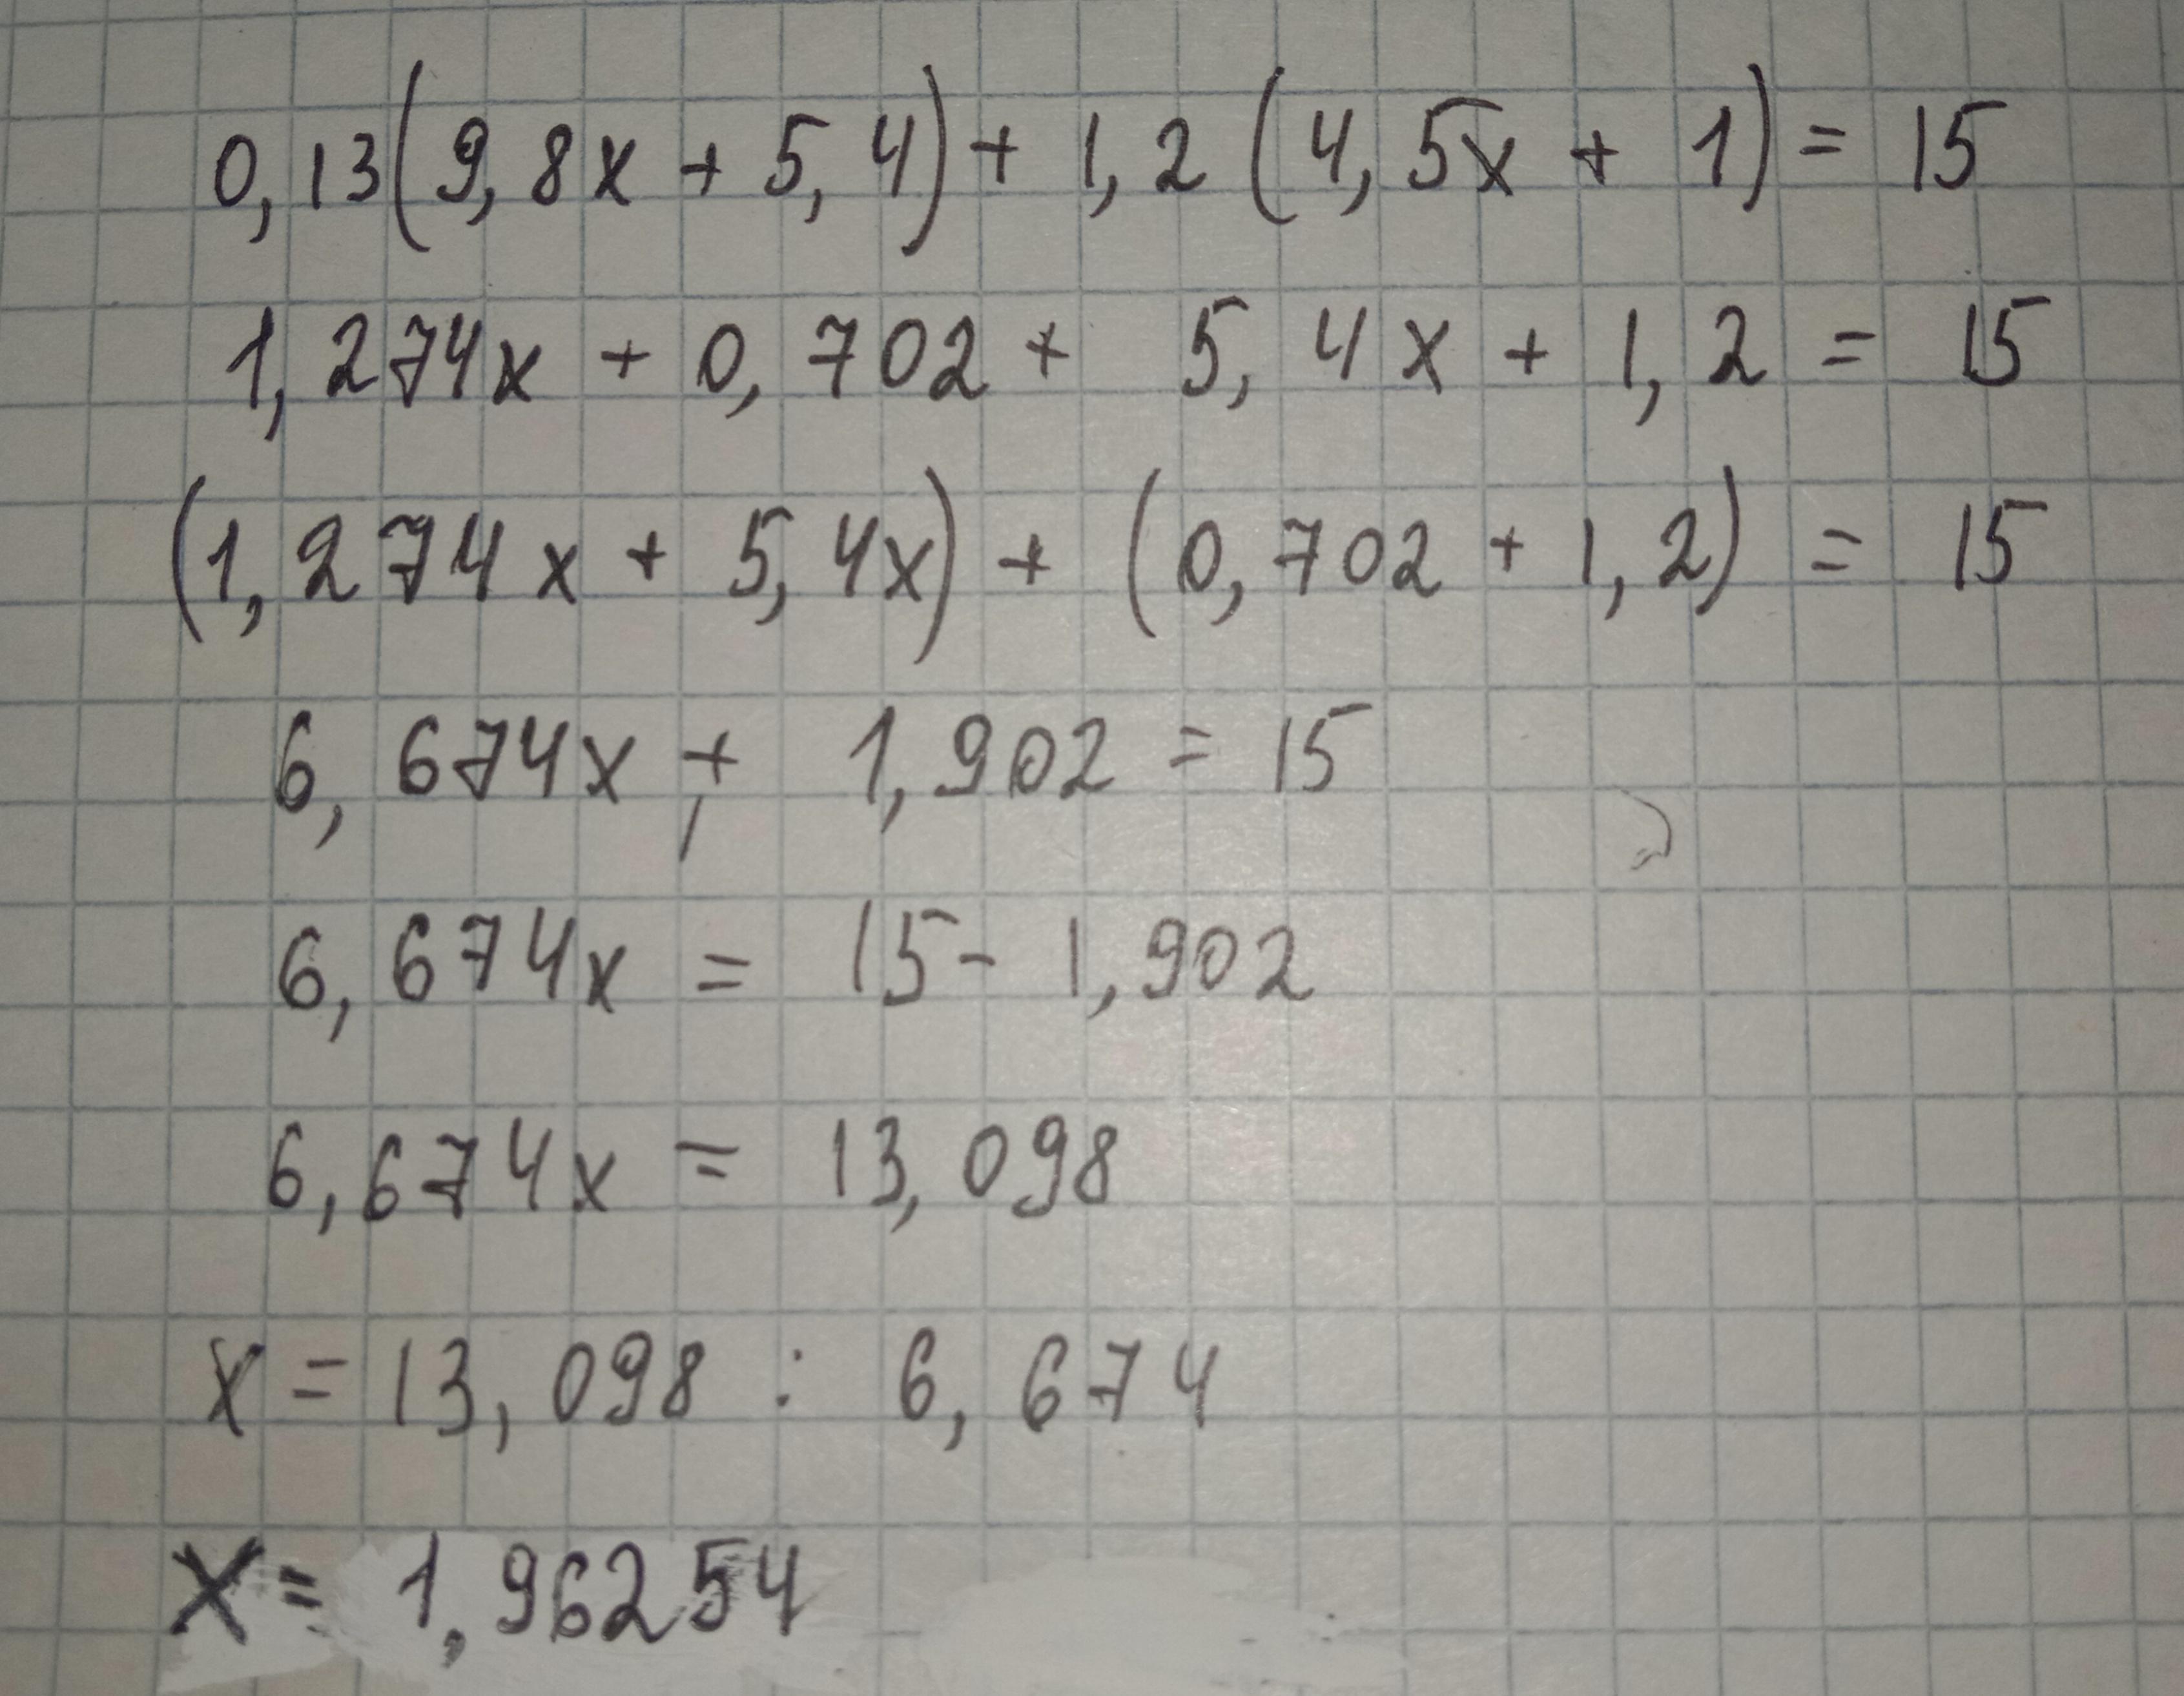 0,13(9,8x + 5,4) + 1,2 (4,5x + 1) = 15
1,274x + 0,702 + 5,4x + 1,2 = 15
(1,274x + 5,4x) + (0,702 + 1,2) = 15
6,674x + 1,902 = 15
6,674x = 15 - 1,902
6,674x = 13,098
x = 13,098 : 6,674
x = 1,96254